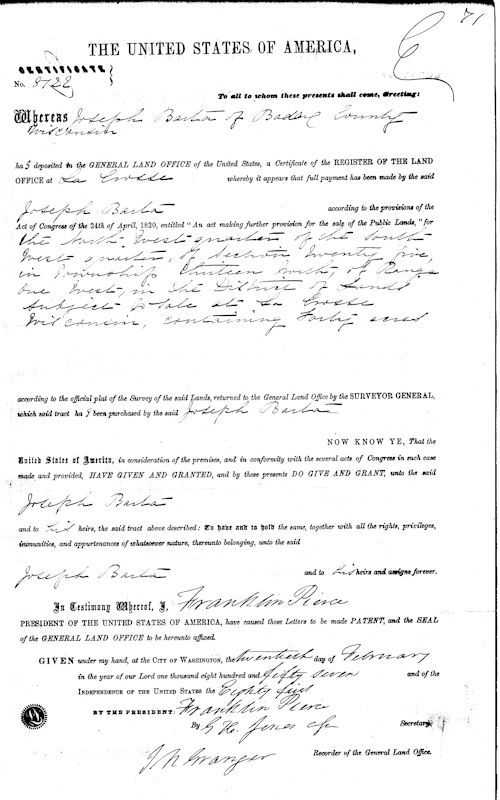 71
THE UNITED STATES OF AMERICA,
CERTIFICATE
No. 8722
To all to whom these presents shall come, Greeting:
Whereas Joseph Barta of Badax County
Wisconsin
has deposited in the GENERAL LAND OFFICE of the United States, a Certificate of the REGISTER OF THE LAND
OFFICE at La Crosse whereby it appears that full payment has been made by the said
Joseph Barta according to the provisions of the
Act of Congress of the 24th of April, 1820, entitled "An act making further provision for the sale of the Public Lands," for
the North West quarter of the South
West quarter, of Section Twenty five,
in Township thirteen North, of Range
One West, in the District of Lands
Subject to Sale at La Crosse
Wisconsin, containing Forty acres
according to the official plat of the Survey of the said Lands, returned to the General Land Office by the SURVEYOR GENERAL,
which said tract has been purchased by the said Joseph Barta
NOW KNOW YE, That the
United States of America, in consideration of the premises, and in conformity with the several acts of Congress in such case
made and provided, HAVE GIVEN AND GRANTED, and by these presents DO GIVE AND GRANT, unto the said
Joseph Barta
and to his heirs, the said tract above described: To have and to hold the same, together with all the rights, privileges,
immunities, and appurtenances of whatsoever nature, thereunto belonging, unto the said
Joseph Barta and to his heirs and assigns forever.
In Testimony Whereof, I, Franklin Pierce
PRESIDENT OF THE UNITED STATES OF AMERICA, have caused these Letters to be made PATENT, and the SEAL
of the GENERAL LAND OFFICE to be hereunto affixed.
GIVEN under my hand, at the CITY OF WASHINGTON, the twentieth day of February
in the year of our Lord one thousand eight hundred and fifty seven and of the
INDEPENDENCE OF THE UNITED STATES the Eighty first
BY THE PRESIDENT: Franklin Pierce
By Jones Secretary.
J N Granger Recorder of the General Land Office.